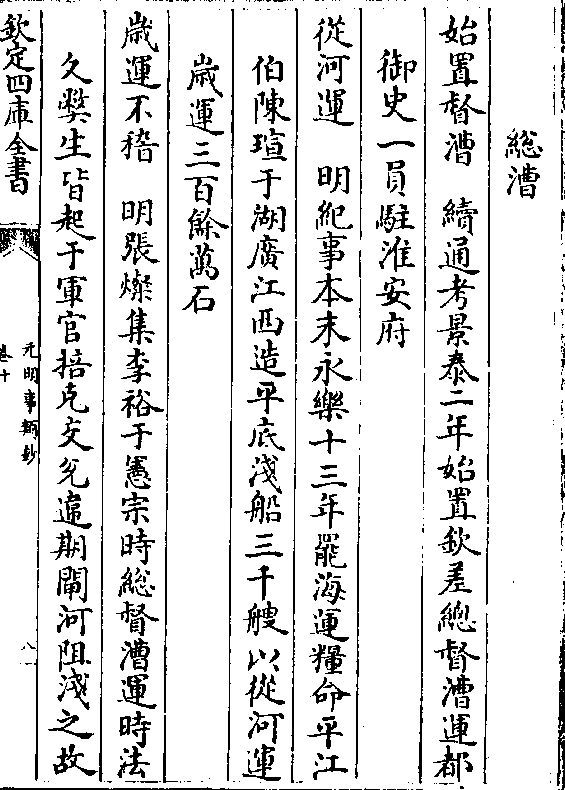 總漕
始置督漕　續通考景泰二年始置欽差總督漕運都
御史一員駐淮安府
從河運　明紀事本末永樂十三年罷海運糧命平江
伯陳瑄于湖廣江西造平底淺船三千艘以從河運
歲運三百餘萬石
歲運不稽　明張燦集李裕于憲宗時總督漕運時法
久弊生皆起于軍官掊克交兌違期閘河阻淺之故
欽定四庫全書
元明事類鈔
卷十
八